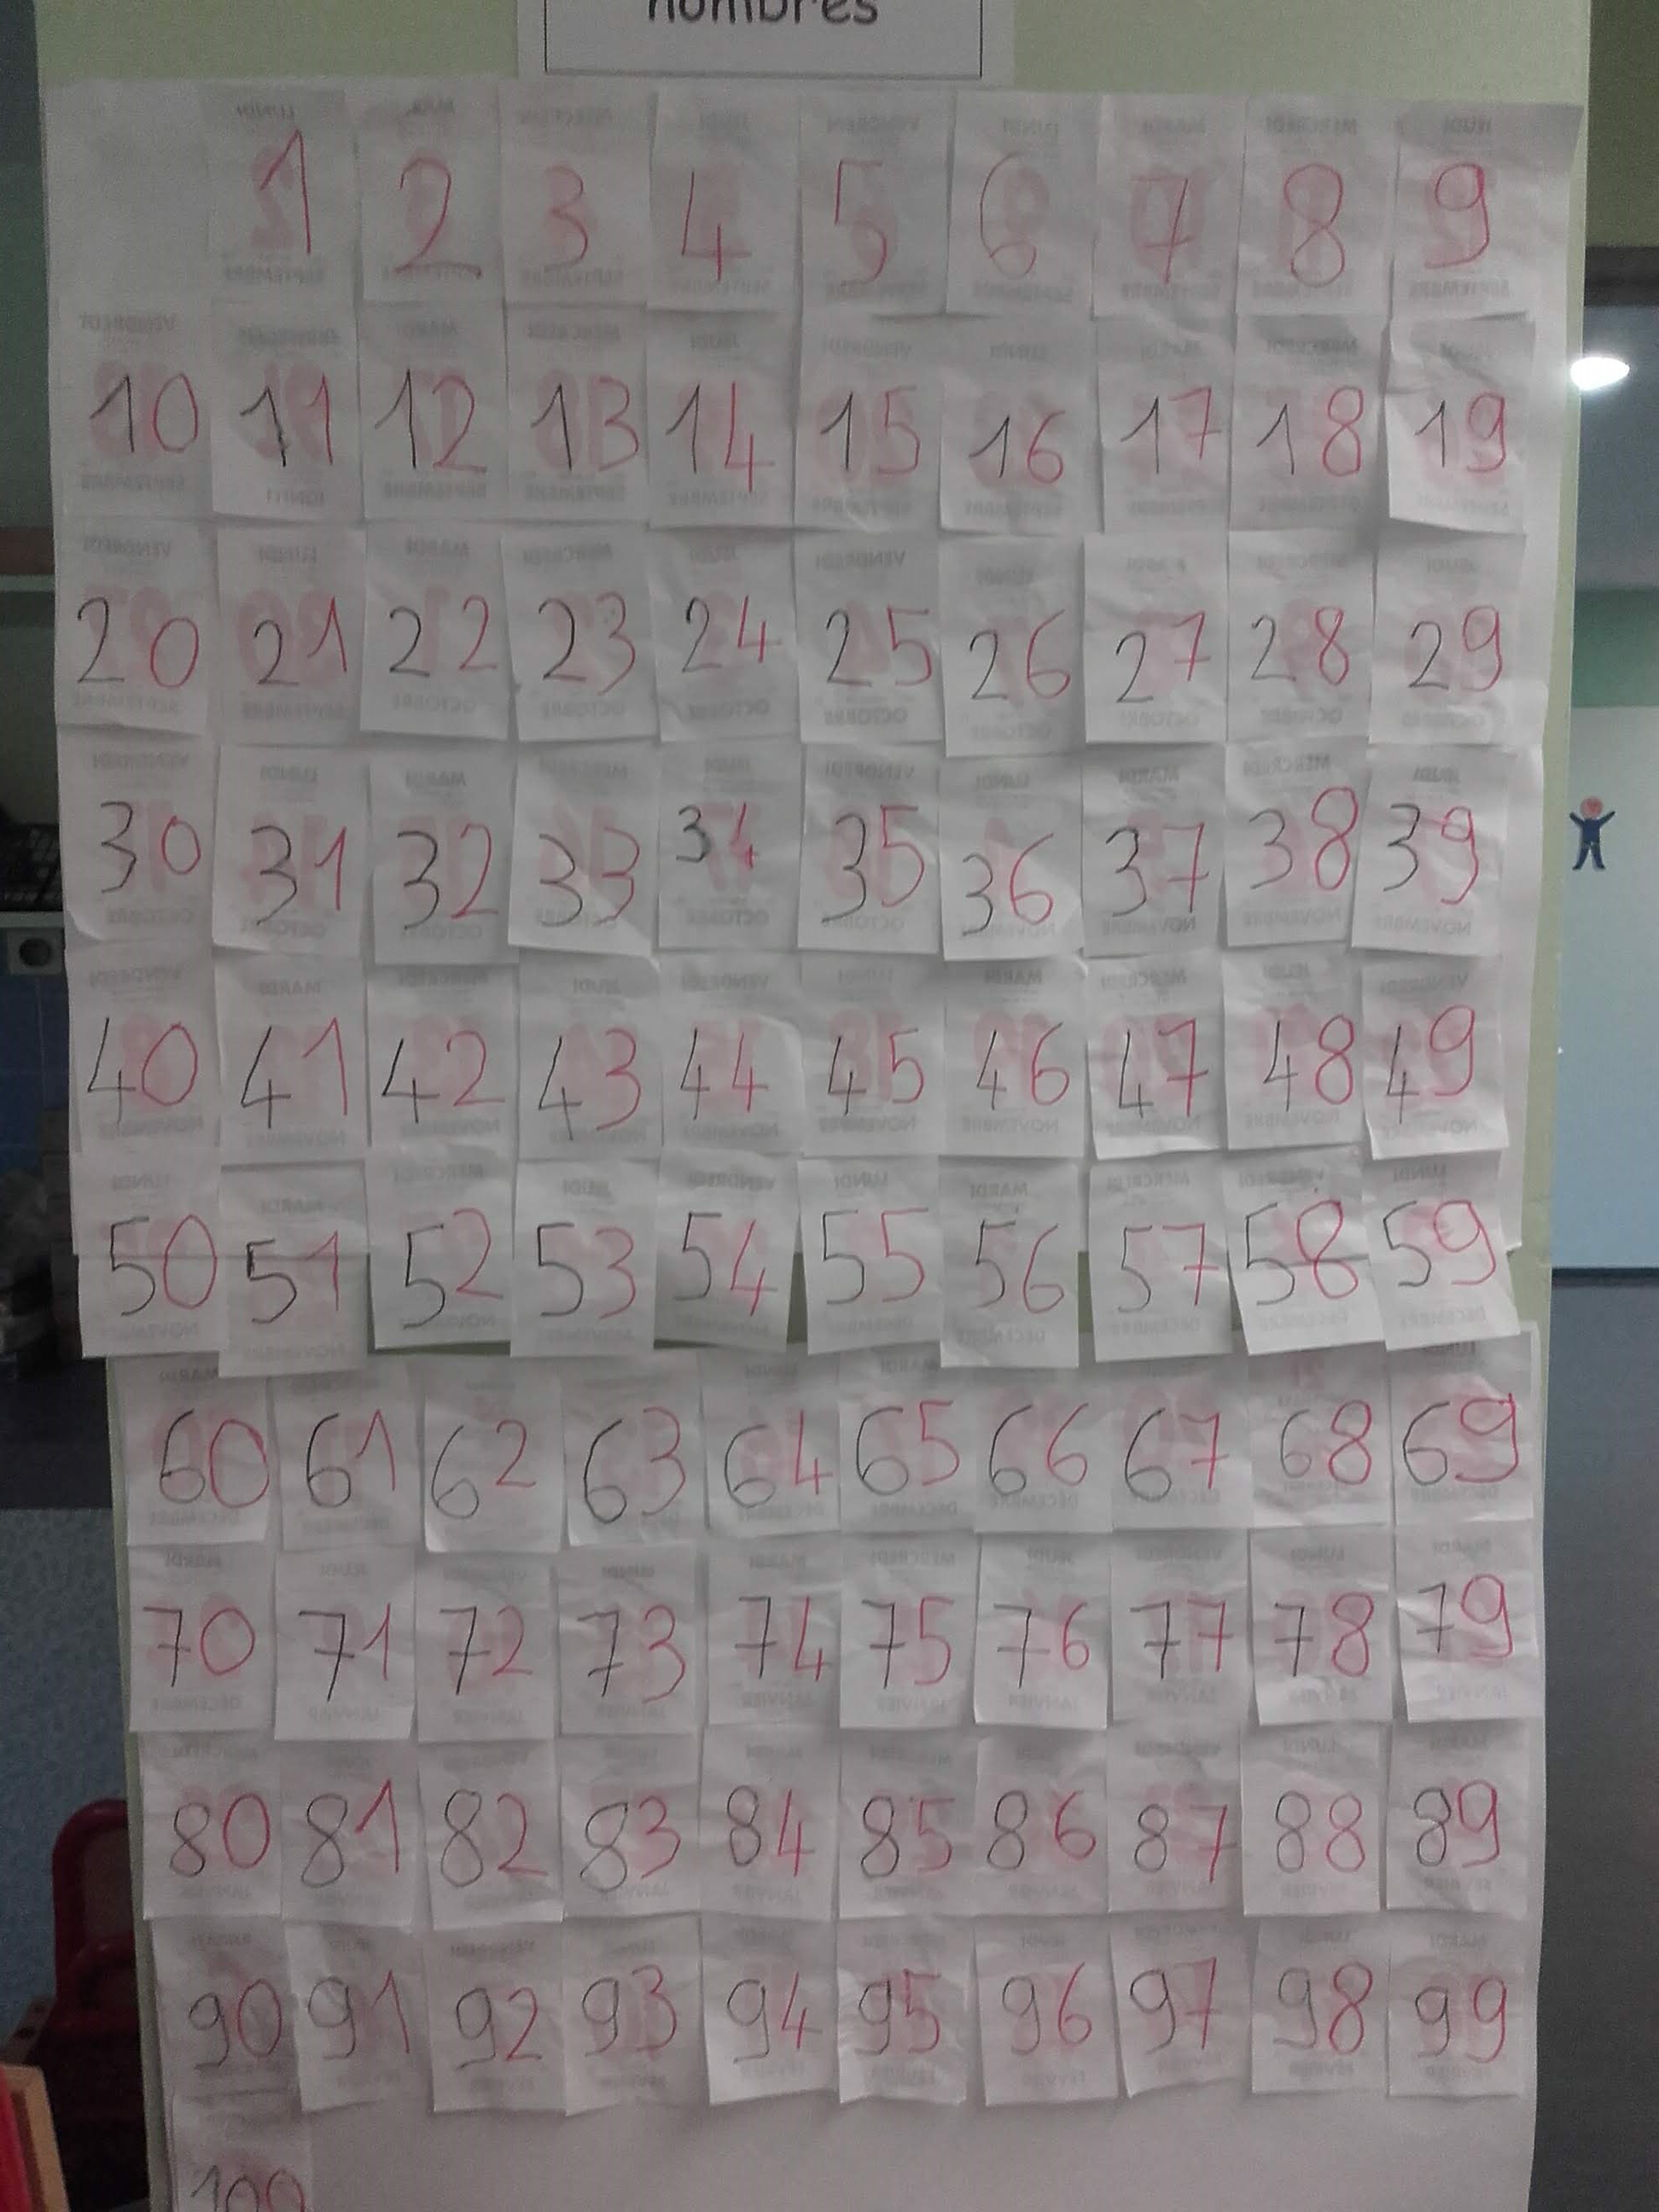 nombres
1 2 3 4 5 6 7 8 9
10 11 12 13 14 15 16 17 18 19
20 21 22 23 24 25 26 27 28 29
30 31 32 33 34 35 36 37 38 39
40 41 42 43 44 45 46 47 48 49
50 51 52 53 54 55 56 57 58 59
60 61 62 63 64 65 66 67 68 69
70 71 72 73 74 75 76 77 78 79
80 81 82 83 84 85 86 87 88 89
90 91 92 93 94 95 96 97 98 99
100